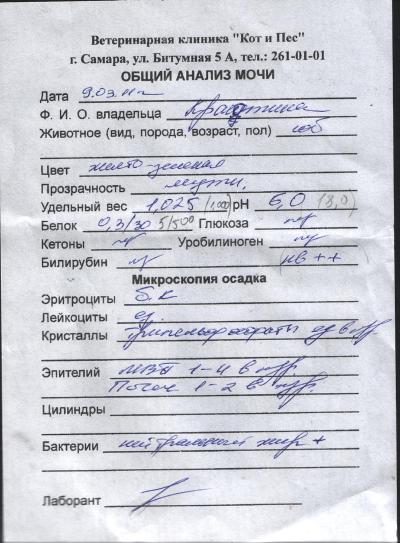 Ветеринарная клиника "Кот и Пес"
г. Самара, ул. Битумная 5 А, тел.: 261-01-01
ОБЩИЙ АНАЛИЗ МОЧИ
Дата 9.03.11г
Ф. И. О. владельца
Животное (вид, порода, возраст, пол) соб
Цвет желто-зеленая
Прозрачность мутн.
Удельный вес 1,025 pH 6,0 (8,0)
Белок 0,3/30 5/500 Глюкоза нг
Кетоны нг Уробилиноген нг
Билирубин нг нв ++
Микроскопия осадка
Эритроциты б.к
Лейкоциты ед.
Кристаллы Трипельфосфаты ед в п/зр.
Эпителий МВП 1-4 в п/зр.
Почеч 1-2 в п/зр.
Цилиндры
Бактерии нейтральный жир +
Лаборант